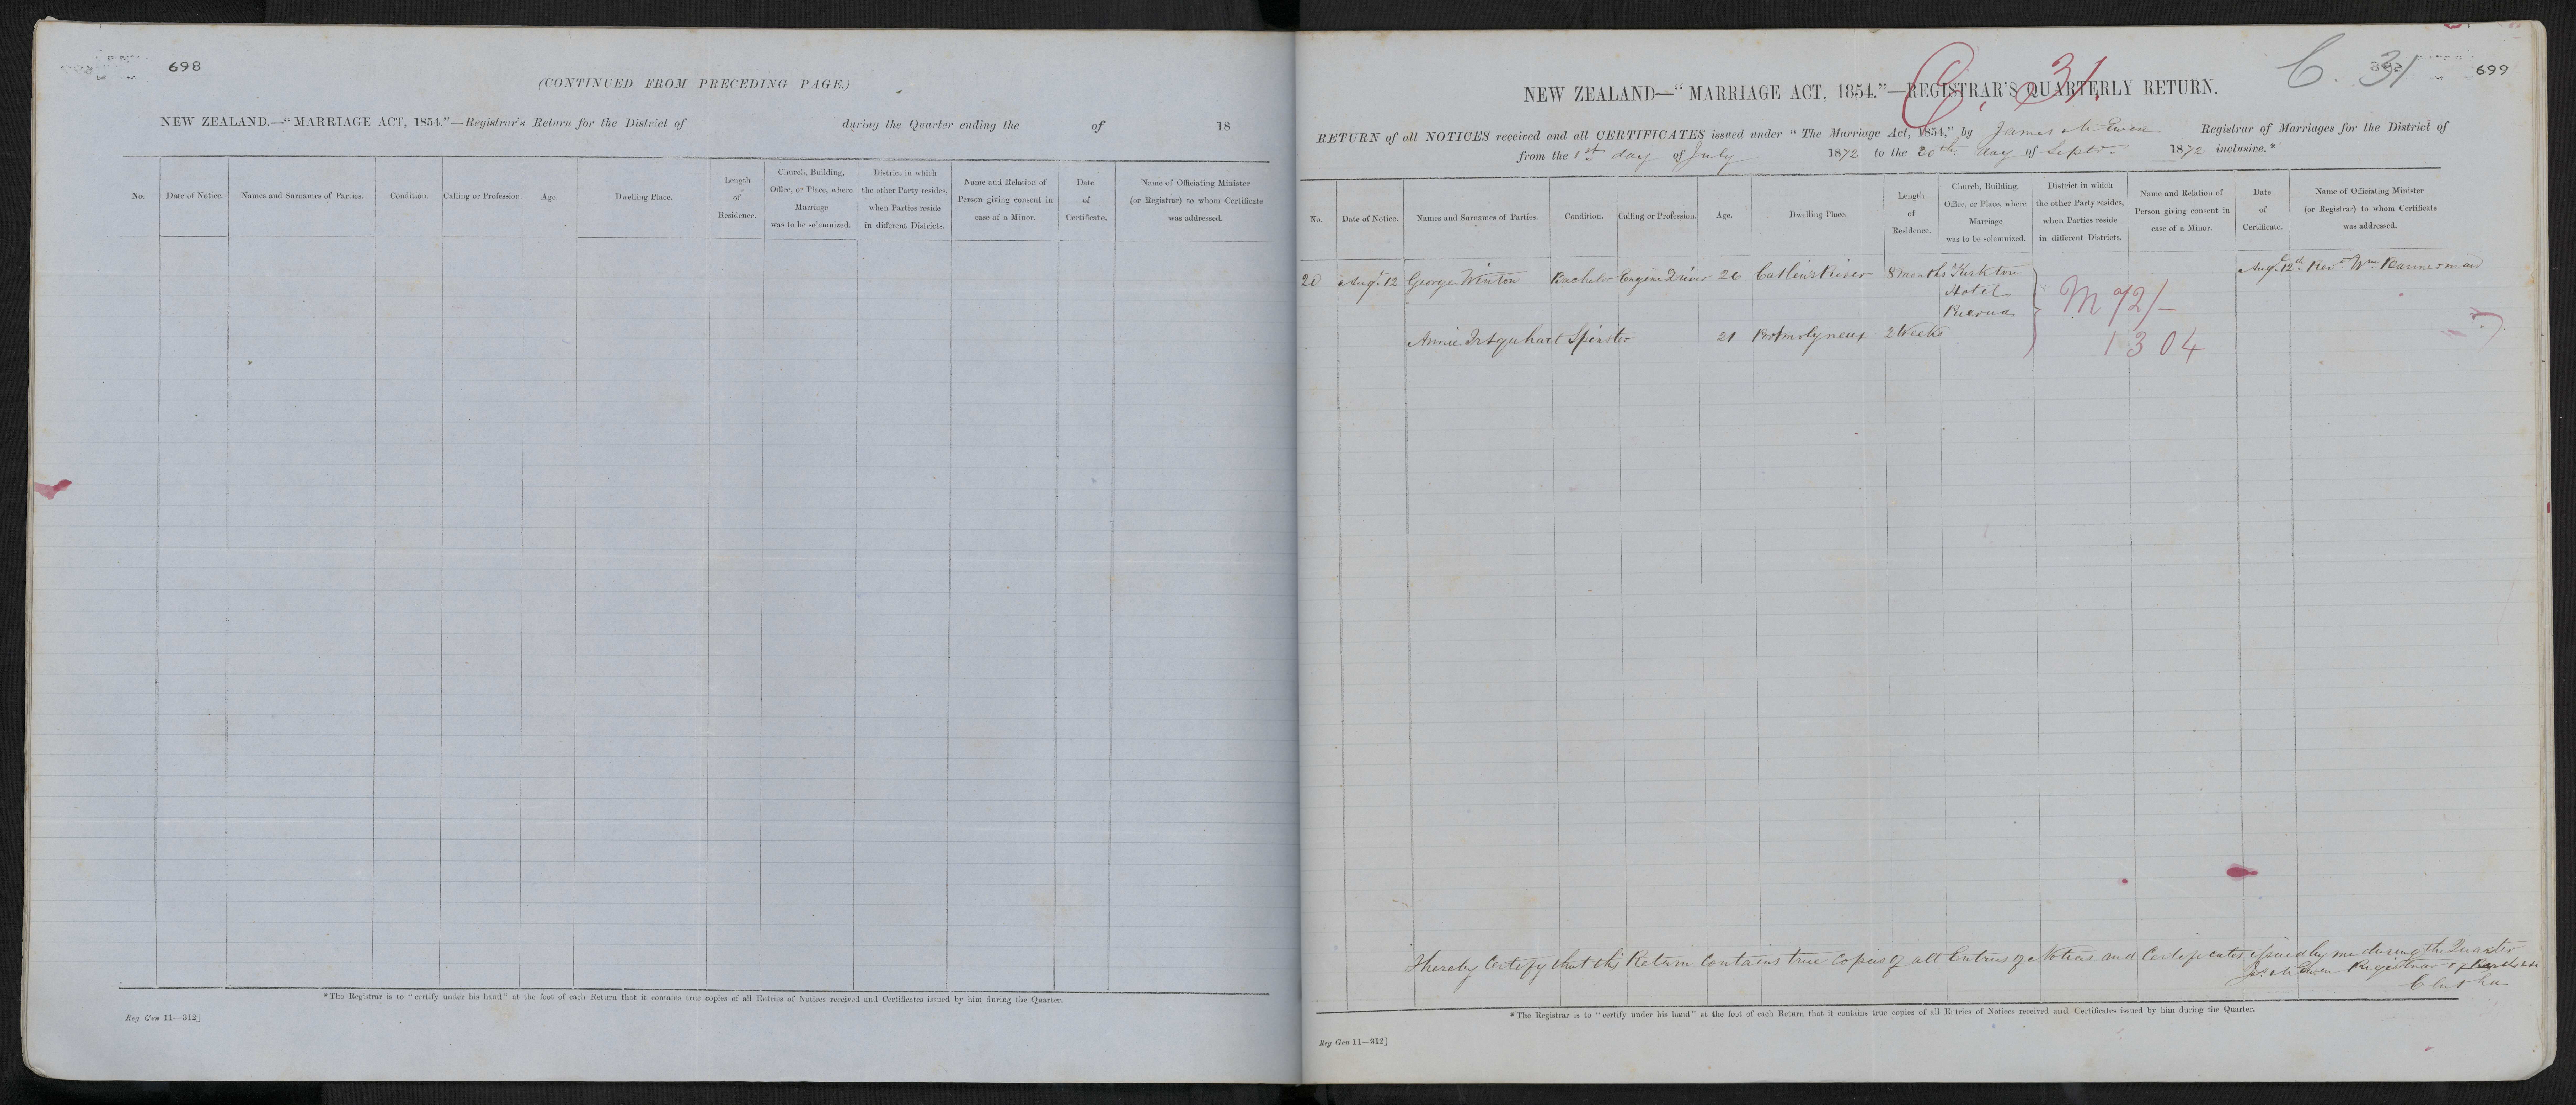 698
(CONTINUED FROM PRECEDING PAGE.)
NEW ZEALAND.—“MARRIAGE ACT, 1854.”—Registrar's Return for the District of during the Quarter ending the of 18
No.
Date of Notice.
Names and Surnames of Parties.
Condition.
Calling or Profession.
Age.
Dwelling Place.
Length
of
Residence.
Church, Building,
Office, or Place, where
Marriage
was to be solemnized.
District in which
the other Party resides,
when Parties reside
in different Districts.
Name and Relation of
Person giving consent in
case of a Minor.
Date
of
Certificate.
Name of Officiating Minister
(or Registrar) to whom Certificate
was addressed.
*The Registrar is to “certify under his hand” at the foot of each Return that it contains true copies of all Entries of Notices received and Certificates issued by him during the Quarter.
Reg Gen 11—312]
C. 31
C. 31
699
NEW ZEALAND—“MARRIAGE ACT, 1854.”—REGISTRAR'S QUARTERLY RETURN.
RETURN of all NOTICES received and all CERTIFICATES issued under “The Marriage Act, 1854,” by James McEwen Registrar of Marriages for the District of
from the 1st day of July 1872 to the 30th day of Septr. 1872 inclusive.*
No.
Date of Notice.
Names and Surnames of Parties.
Condition.
Calling or Profession.
Age.
Dwelling Place.
Length
of
Residence.
Church, Building,
Office, or Place, where
Marriage
was to be solemnized.
District in which
the other Party resides,
when Parties reside
in different Districts.
Name and Relation of
Person giving consent in
case of a Minor.
Date
of
Certificate.
Name of Officiating Minister
(or Registrar) to whom Certificate
was addressed.
20 Augt. 12 George Winton Bachelor Engine Driver 26 Catlins River 8 months Kirkton Augt. 12th. Revd. Wm Bannerman
Hotel
M 72/-
Annie Urquhart Spinster 21 Portmolyneux 2 Weeks
1304
I hereby Certify that this Return Contains true Copies of all Entries of Notices and Certificates issued by me during the Quarter
Jas McEwen Registrar of
Clutha
*The Registrar is to “certify under his hand” at the foot of each Return that it contains true copies of all Entries of Notices received and Certificates issued by him during the Quarter.
Reg Gen 11—312]